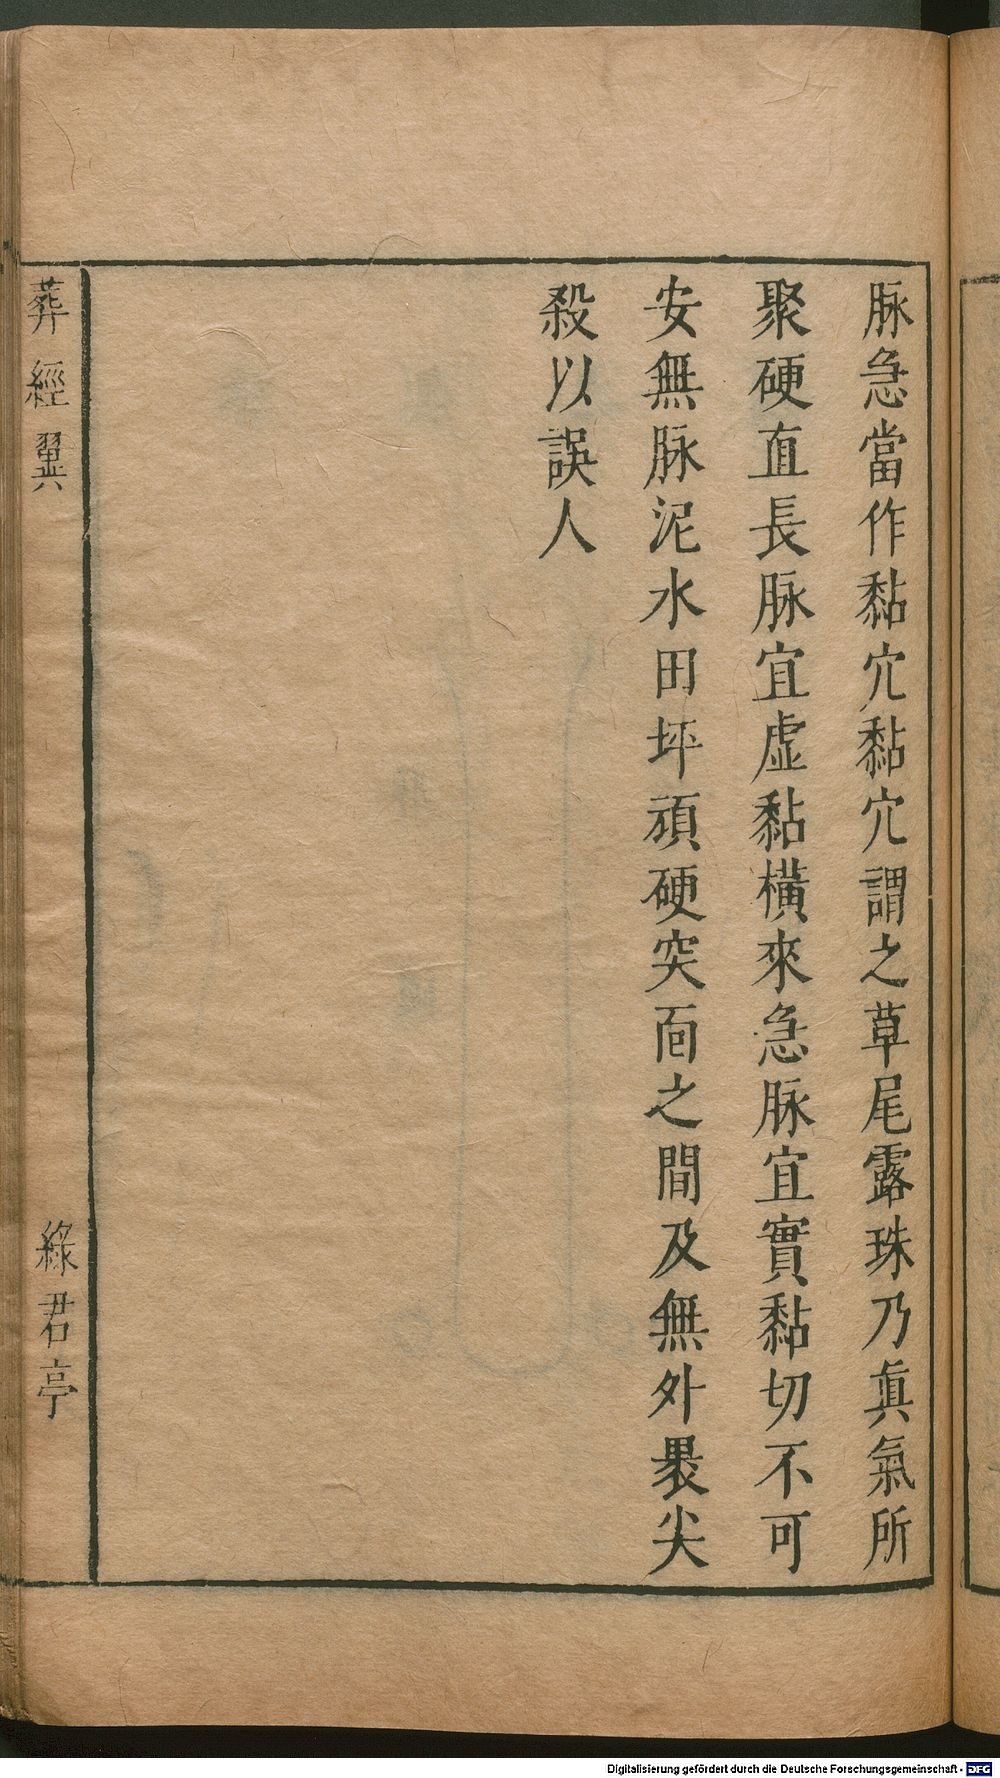 脉急當作黏穴黏穴謂之草尾露珠乃眞氣所
聚硬直長脉宜虛黏橫來急脉宜實黏切不可
安無脉泥水田坪頑硬突面之間及無外褁尖
殺以誤人
葬經翼
綠君亭
Digitalisierung gefördert durch die Deutsche Forschungsgemeinschaft - DFG